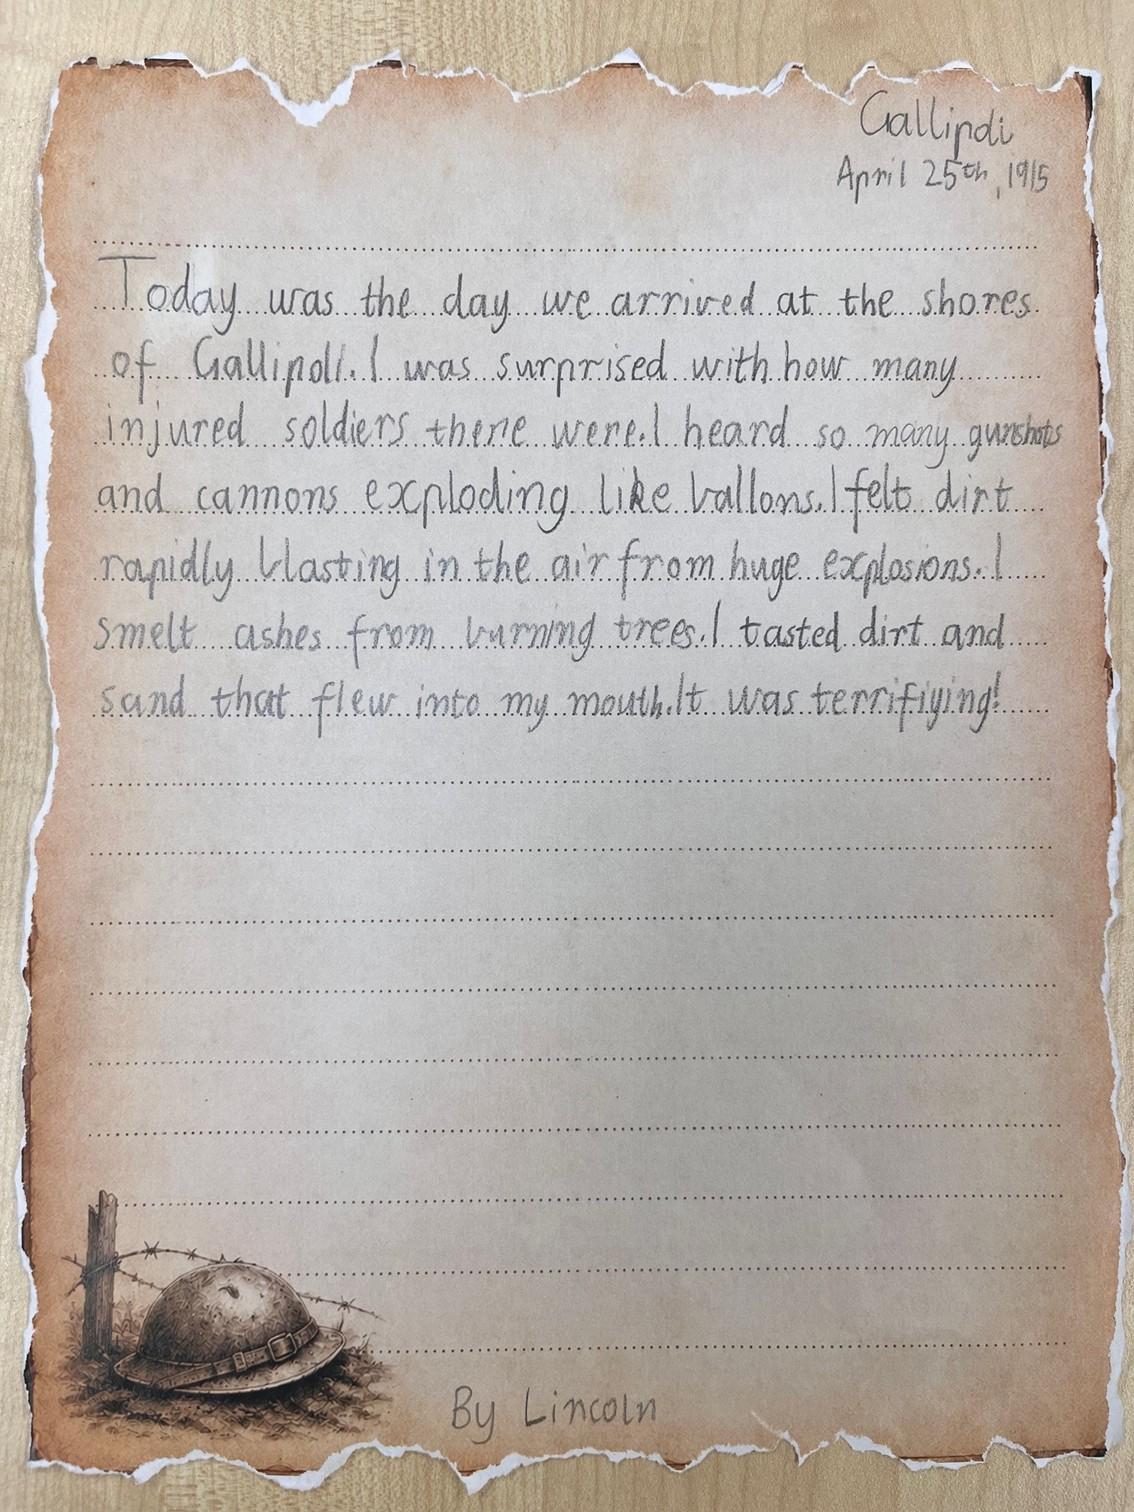 Gallipoli
April 25th, 1915
Today was the day we arrived at the shores
of Gallipoli. I was surprised with how many
injured soldiers there were. I heard so many gunshots
and cannons exploding like ballons. I felt dirt
rapidly blasting in the air from huge explosions. I
smelt ashes from burning trees. I tasted dirt and
sand that flew into my mouth. It was terrifiying!
By Lincoln